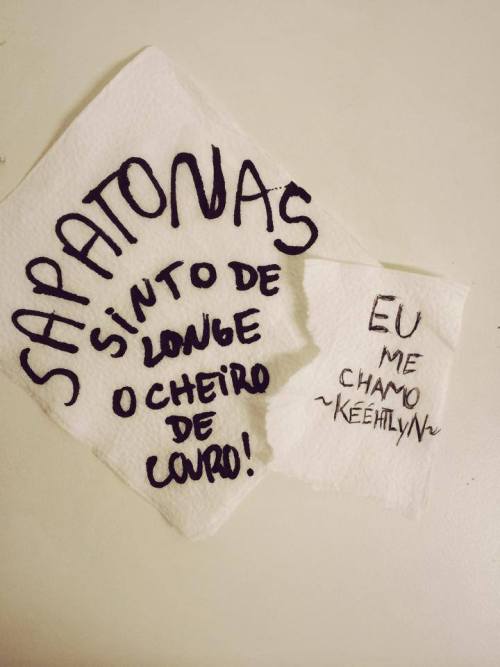 SAPATONAS
SINTO DE
LONGE
O CHEIRO
DE
COURO!
EU
ME
CHAMO
~KÉÉHTLYN~